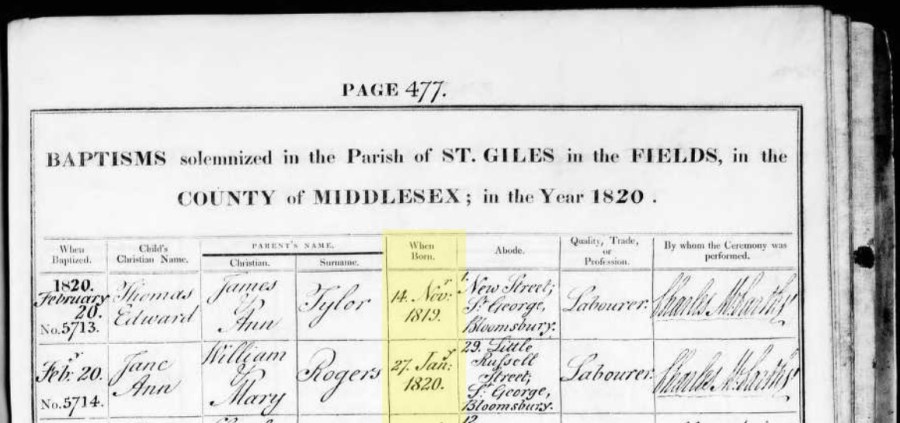 PAGE 477.
BAPTISMS solemnized in the Parish of ST. GILES in the FIELDS, in the
COUNTY of MIDDLESEX; in the Year 1820.
When Baptized.
Child's Christian Name.
PARENT'S NAME.
Christian.
Surname.
When Born.
Abode.
Quality, Trade, or Profession.
By whom the Ceremony was performed.
1820.
February
20.
No. 5713.
Thomas
Edward
James
&
Ann
Tylor
14. Novr:
1819.
1. New Street,
St. George,
Bloomsbury.
Labourer.
Charles McCarthy
Febr. 20.
No. 5714.
Jane
Ann
William
&
Mary
Rogers
27. Jany:
1820.
29. Little
Russell
Street,
St. George,
Bloomsbury.
Labourer.
Charles McCarthy